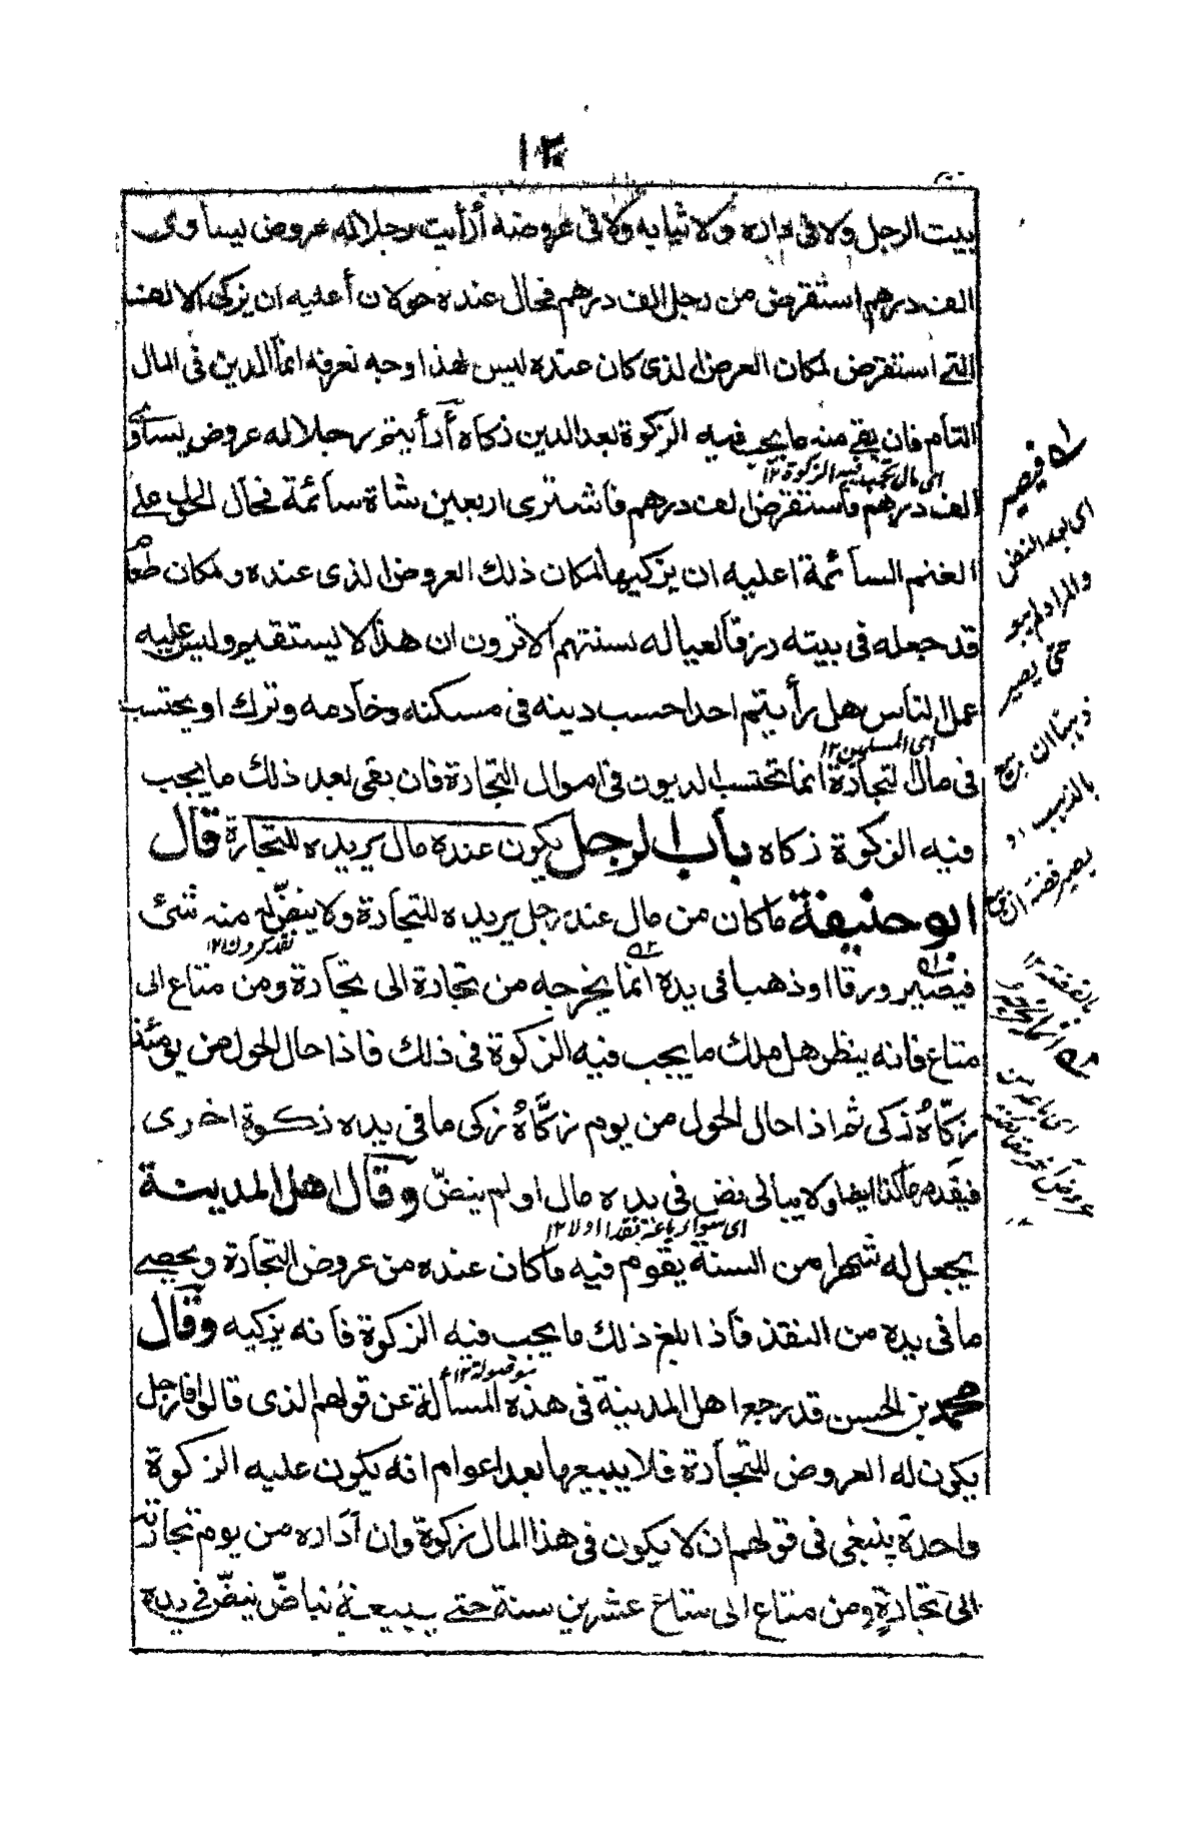 ١٣٠
بيت الرجل ولا في داره ولا ثيابه ولا في عروضه أرأيت رجلا له عروض يساوى
الف درهم استقرض من رجل الف درهم فحال عنده حولان أعليه ان يزكى الالف
التے استقرض لمكان العرض الذى كان عنده ليس لهذا وجه نعرفه انما الدين فى المال
التام فان بقے منه ما يجب فيه الزكوة بعد الدين زكاه أرأيتم رجلا له عروض يساوى
اى مال تجب فيه الزكوة ١٢
الف درهم فاستقرض الف درهم فاشترى اربعين شاة سائمة فحال الحول على
الغنم السائمة اعليه ان يزكيها لمكان ذلك العروض الذى عنده ولمكان طعام
قد جعله فى بيته رزقا لعياله سنتهم الا ترون ان هذا لا يستقيم وليس عليه
عمل الناس هل رأيتم احدا حسب دينه فى مسكنه وخادمه وترك او يحتسب
اى المسلمين ١٢
فى مال التجارة انما تحتسب الديون فى اموال التجارة فان بقى بعد ذلك ما يجب
فيه الزكوة زكاه باب الرجل يكون عنده مال يريده للتجارة قال
ابو حنيفة ما كان من مال عند رجل يريده للتجارة ولا ينضّ له منه شئ
نقد
فيصير ورقا او ذهبا فى يده انما يخرجه من تجارة الى تجارة ومن متاع الى
متاع فانه ينظر هل ملك ما يجب فيه الزكوة فى ذلك فاذا حال الحول من يومئذ
زكّاهُ زكى ثم اذا حال الحول من يوم زكَّاهُ زكى ما فى يده زكوة اخرى
فيقدم هاكذا ايضا ولا يبالى نض فى يده مال او لم ينضّ وقال اهل المدينة
اى سواء باعه بنقد او لا ١٢
يجعل له شهرا من السنة يقوم فيه ما كان عنده من عروض التجارة ويحصے
ما فى يده من النقد فاذا بلغ ذلك ما يجب فيه الزكوة فانه يزكيه وقال
محمد بن الحسن قد رجع اهل المدينة فى هذه المسألة عن قولهم الذى قالوا فى رجل
يكون له العروض للتجارة فلا يبيعها بعد اعوام انه يكون عليه الزكوة
واحدة ينبغى فى قولهم ان لا يكون فى هذا المال زكوة وان أداره من يوم تجارته
الى تجارة ومن متاع الى متاع عشرين سنة حتے يبيعه بناضّ ينضّ فى يده
له فيصير
اى بعد النض
والمراد لم يبع
حتى يصير
ذهبا ان بيع
بالذهب او
يصير فضة ان بيع
بالفضة ١٢